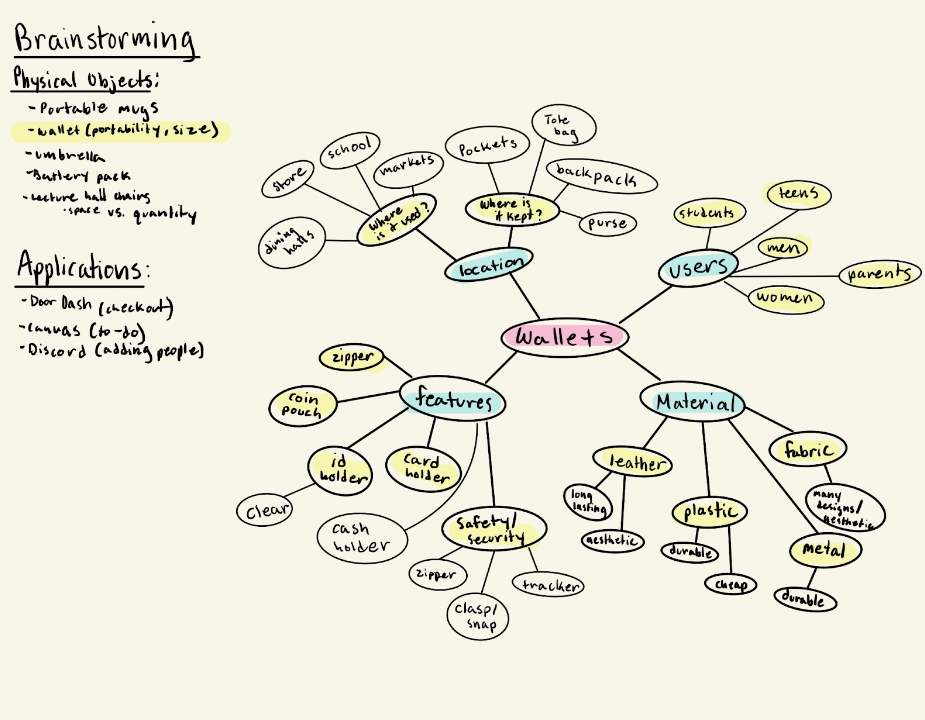 Brainstorming
Physical Objects:
- Portable mugs
- wallet (portability, size)
- umbrella
- Battery pack
- Lecture hall chairs
· space vs. quantity
Applications:
- Door Dash (checkout)
- Canvas (to-do)
- Discord (adding people)
Wallets
location
where
is it used?
dining
halls
store
school
markets
where is
it kept?
Pockets
Tote
bag
backpack
purse
users
students
teens
men
parents
women
features
zipper
coin
pouch
id
holder
clear
card
holder
cash
holder
safety/
security
zipper
clasp/
snap
tracker
Material
leather
long
lasting
aesthetic
plastic
durable
cheap
metal
durable
fabric
many
designs/
aesthetic